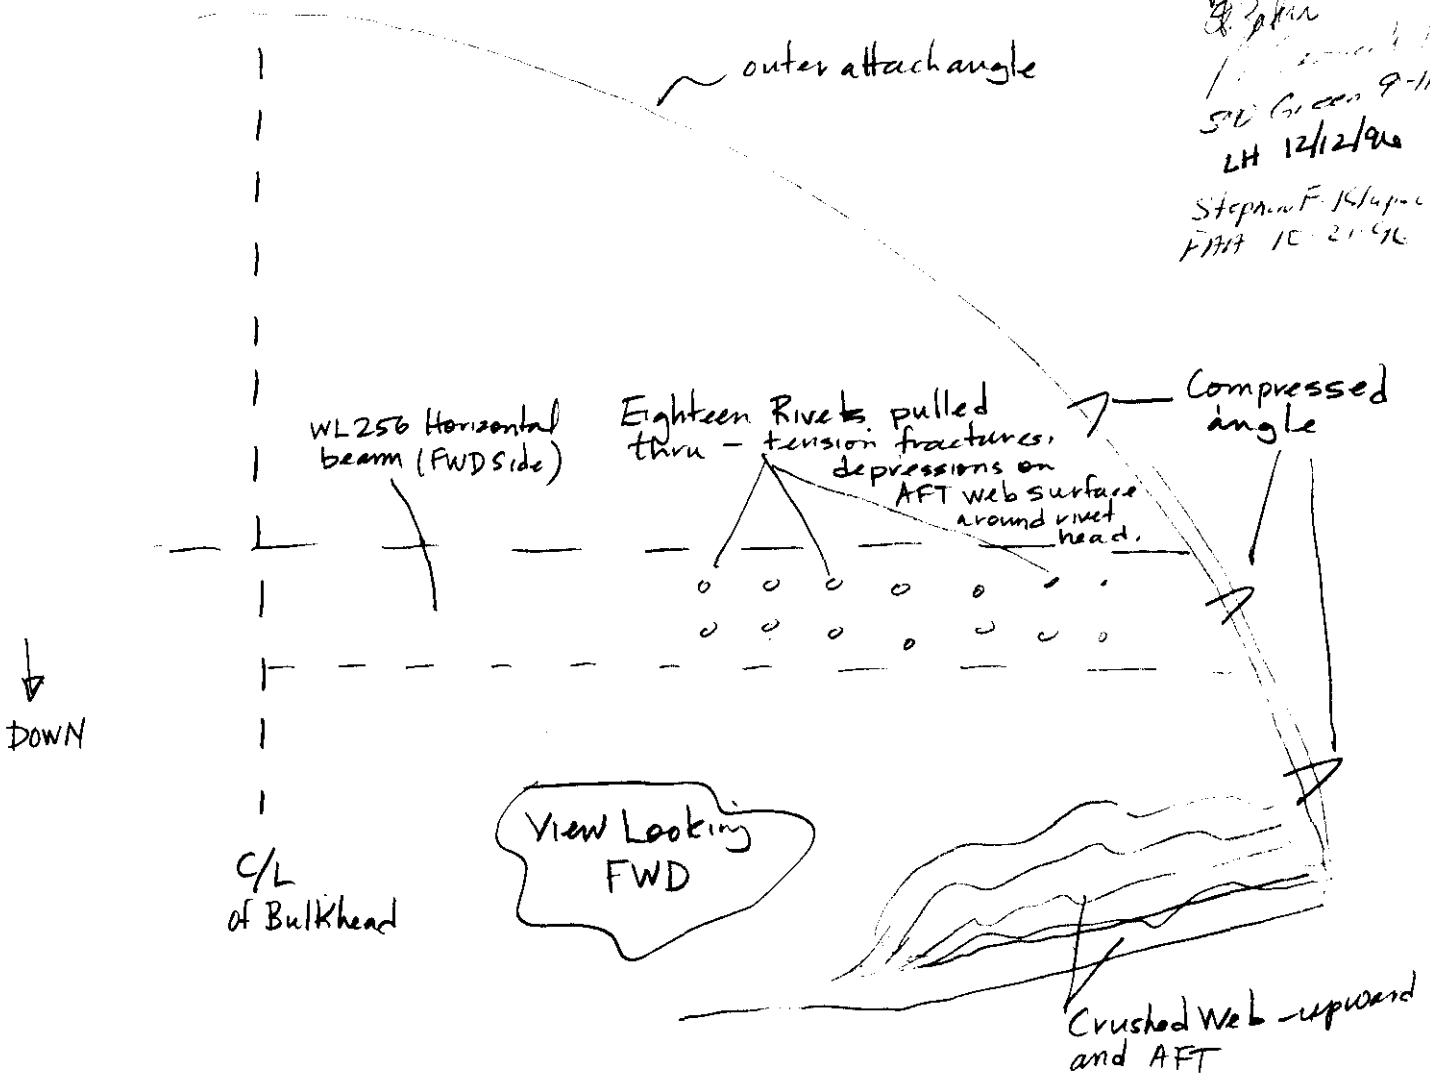 outer attach angle
LH 12/12/96
FAA
Compressed
angle
WL256 Horizontal
beam (FWD Side)
Eighteen Rivets pulled
thru - tension fractures,
depressions on
AFT web surface
around rivet
head.
DOWN
View Looking
FWD
C/L
of Bulkhead
Crushed Web - upward
and AFT